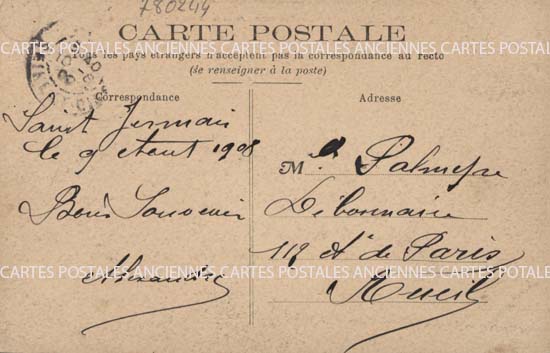 780244
CARTE POSTALE
les pays étrangers n'acceptent pas la correspondance au recto
(se renseigner à la poste)
CARTES POSTALES ANCIENNES CARTES POSTALES ANCIENNES CARTES POSTALES
Correspondance
Saint Germain
le 9 Aout 1908
Bons Souvenir
Alexandre
Adresse
M
Debonnaire
118 de Paris
Rueil
CARTES POSTALES ANCIENNES CARTES POSTALES ANCIENNES CARTES POSTALES